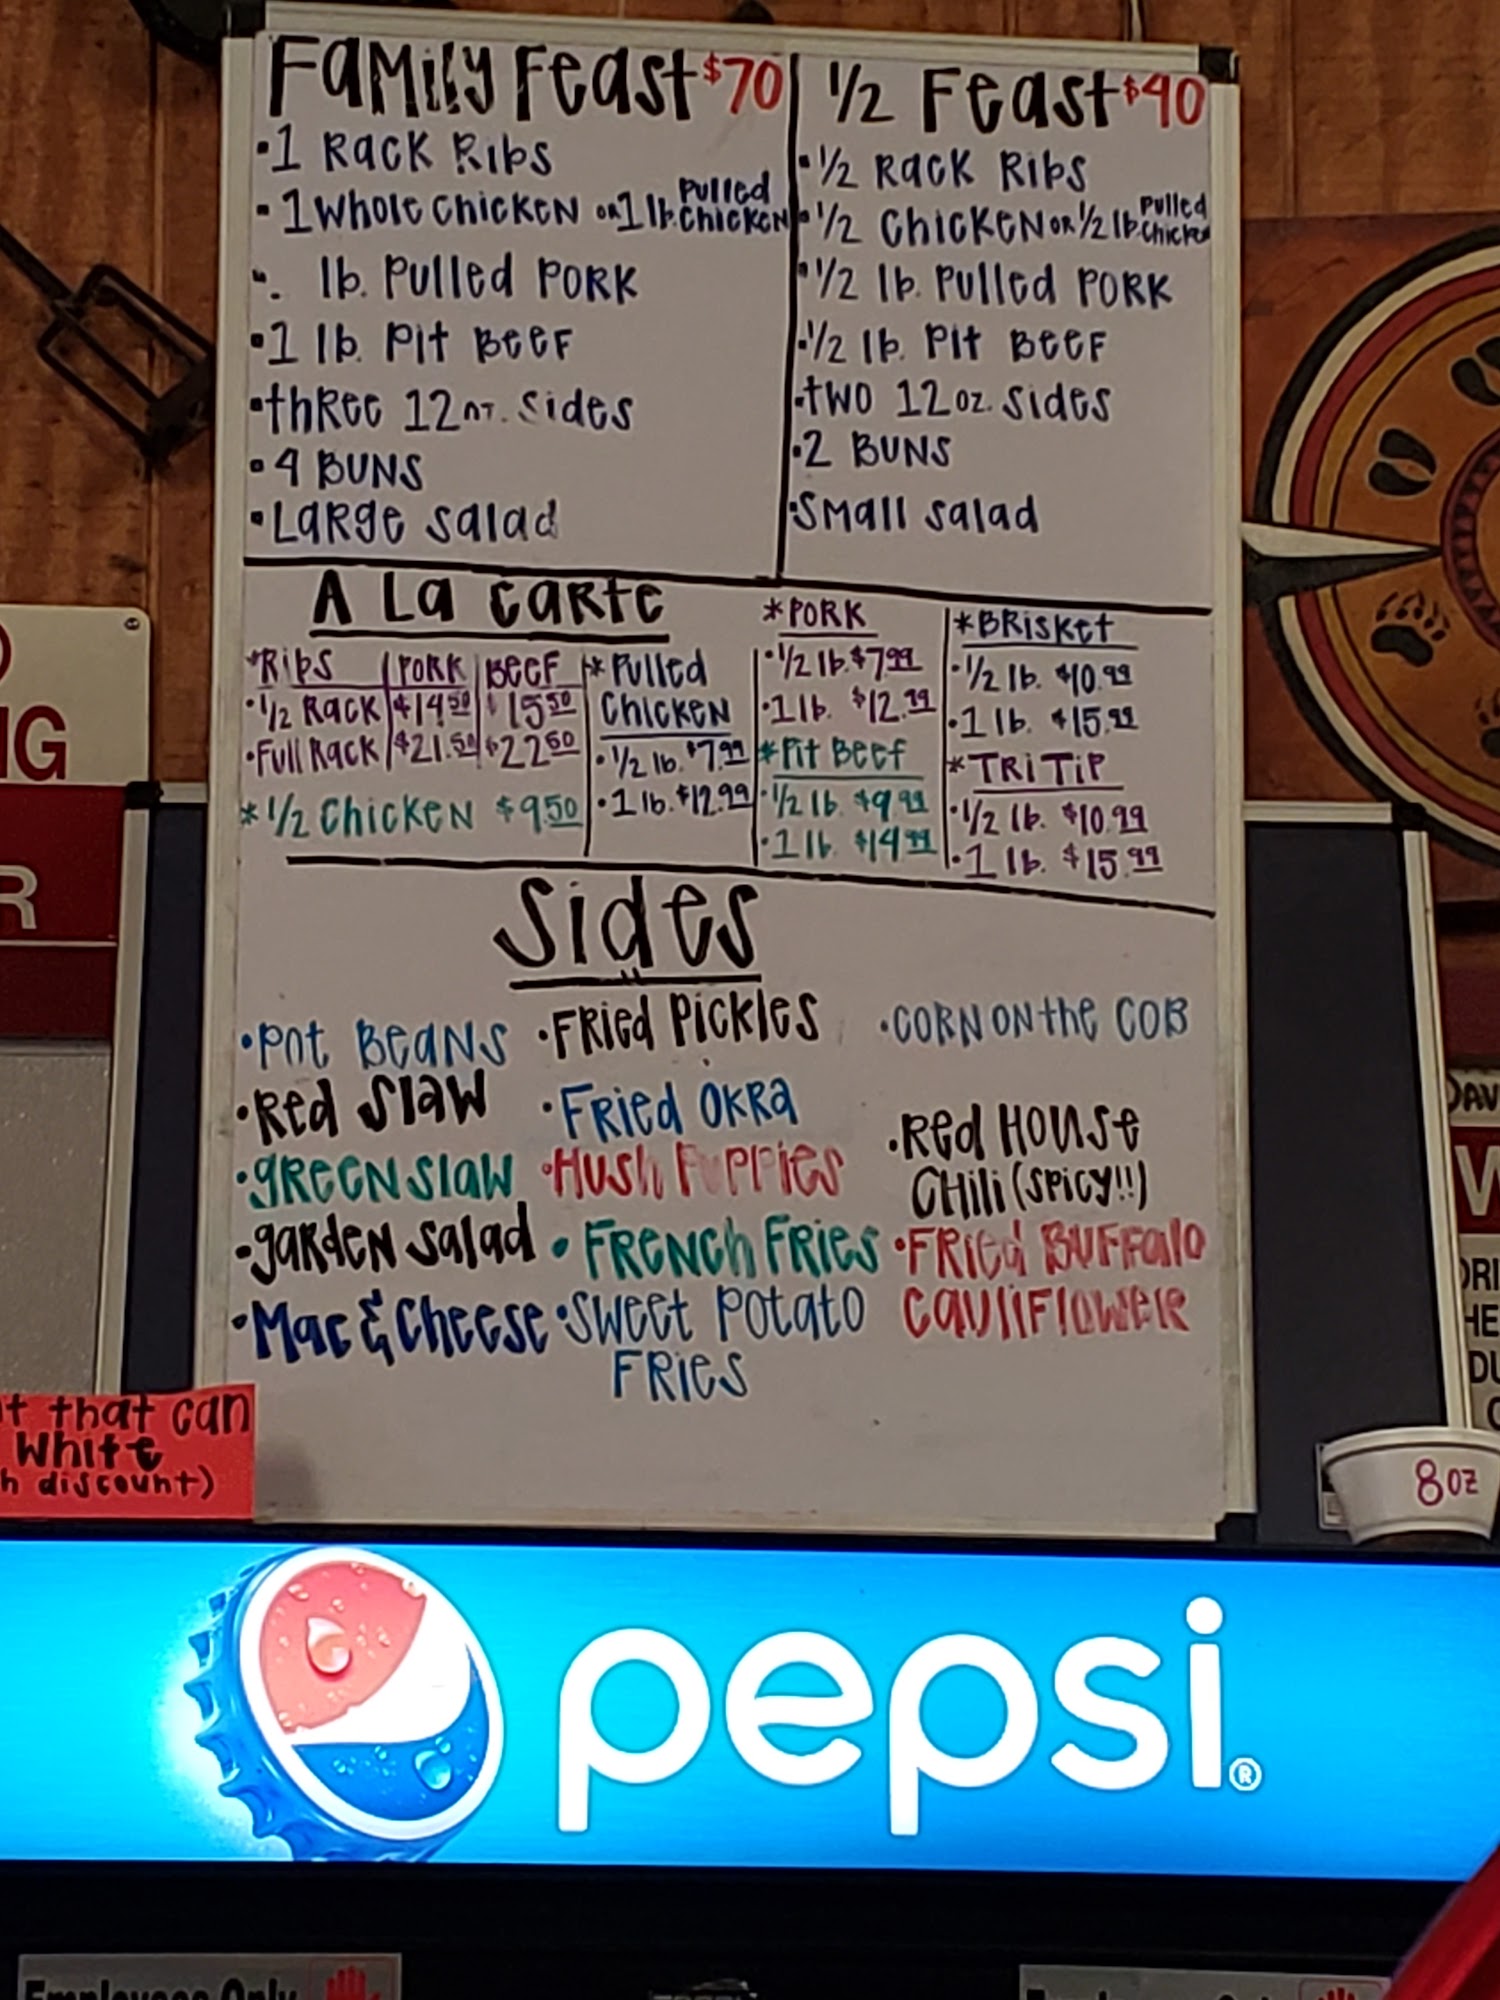 Family Feast $70
• 1 Rack Ribs
• 1 Whole Chicken or 1 lb. Pulled Chicken
• lb. Pulled Pork
• 1 lb. Pit Beef
• three 12 Sides
• 4 Buns
• Large Salad
1/2 Feast $40
• 1/2 Rack Ribs
• 1/2 Chicken or 1/2 lb. Pulled Chicken
• 1/2 lb. Pulled Pork
• 1/2 lb. Pit Beef
• two 12 oz. Sides
• 2 Buns
• Small Salad
A La Carte
*Ribs Pork Beef
• 1/2 Rack $14.50 $15.50
• Full Rack $21.50 $22.50
* 1/2 Chicken $9.50
* Pulled
Chicken
• 1/2 lb. $7.99
• 1 lb. $12.99
* Pork
• 1/2 lb. $7.99
• 1 lb. $12.99
* Pit Beef
• 1/2 lb. $9.99
• 1 lb. $14.99
* Brisket
• 1/2 lb. $10.99
• 1 lb. $15.99
* Tri Tip
• 1/2 lb. $10.99
• 1 lb. $15.99
Sides
• Pot Beans
• Red Slaw
• Green Slaw
• Garden Salad
• Mac & Cheese
• Fried Pickles
• Fried Okra
• Hush Puppies
• French Fries
• Sweet Potato
Fries
• Corn on the Cob
• Red House
Chili (Spicy!!)
• Fried Buffalo
Cauliflower
that can
White
discount)
8 oz
pepsi®
Employees Only